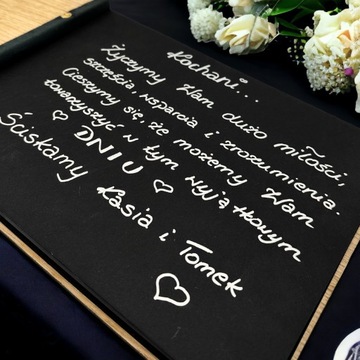 Kochani...
Życzymy Wam dużo miłości,
szczęścia, wsparcia i zrozumienia.
Cieszymy się, że możemy Wam
towarzyszyć w tym wyjątkowym
♡ DNIU ♡
Ściskamy Kasia i Tomek
♡